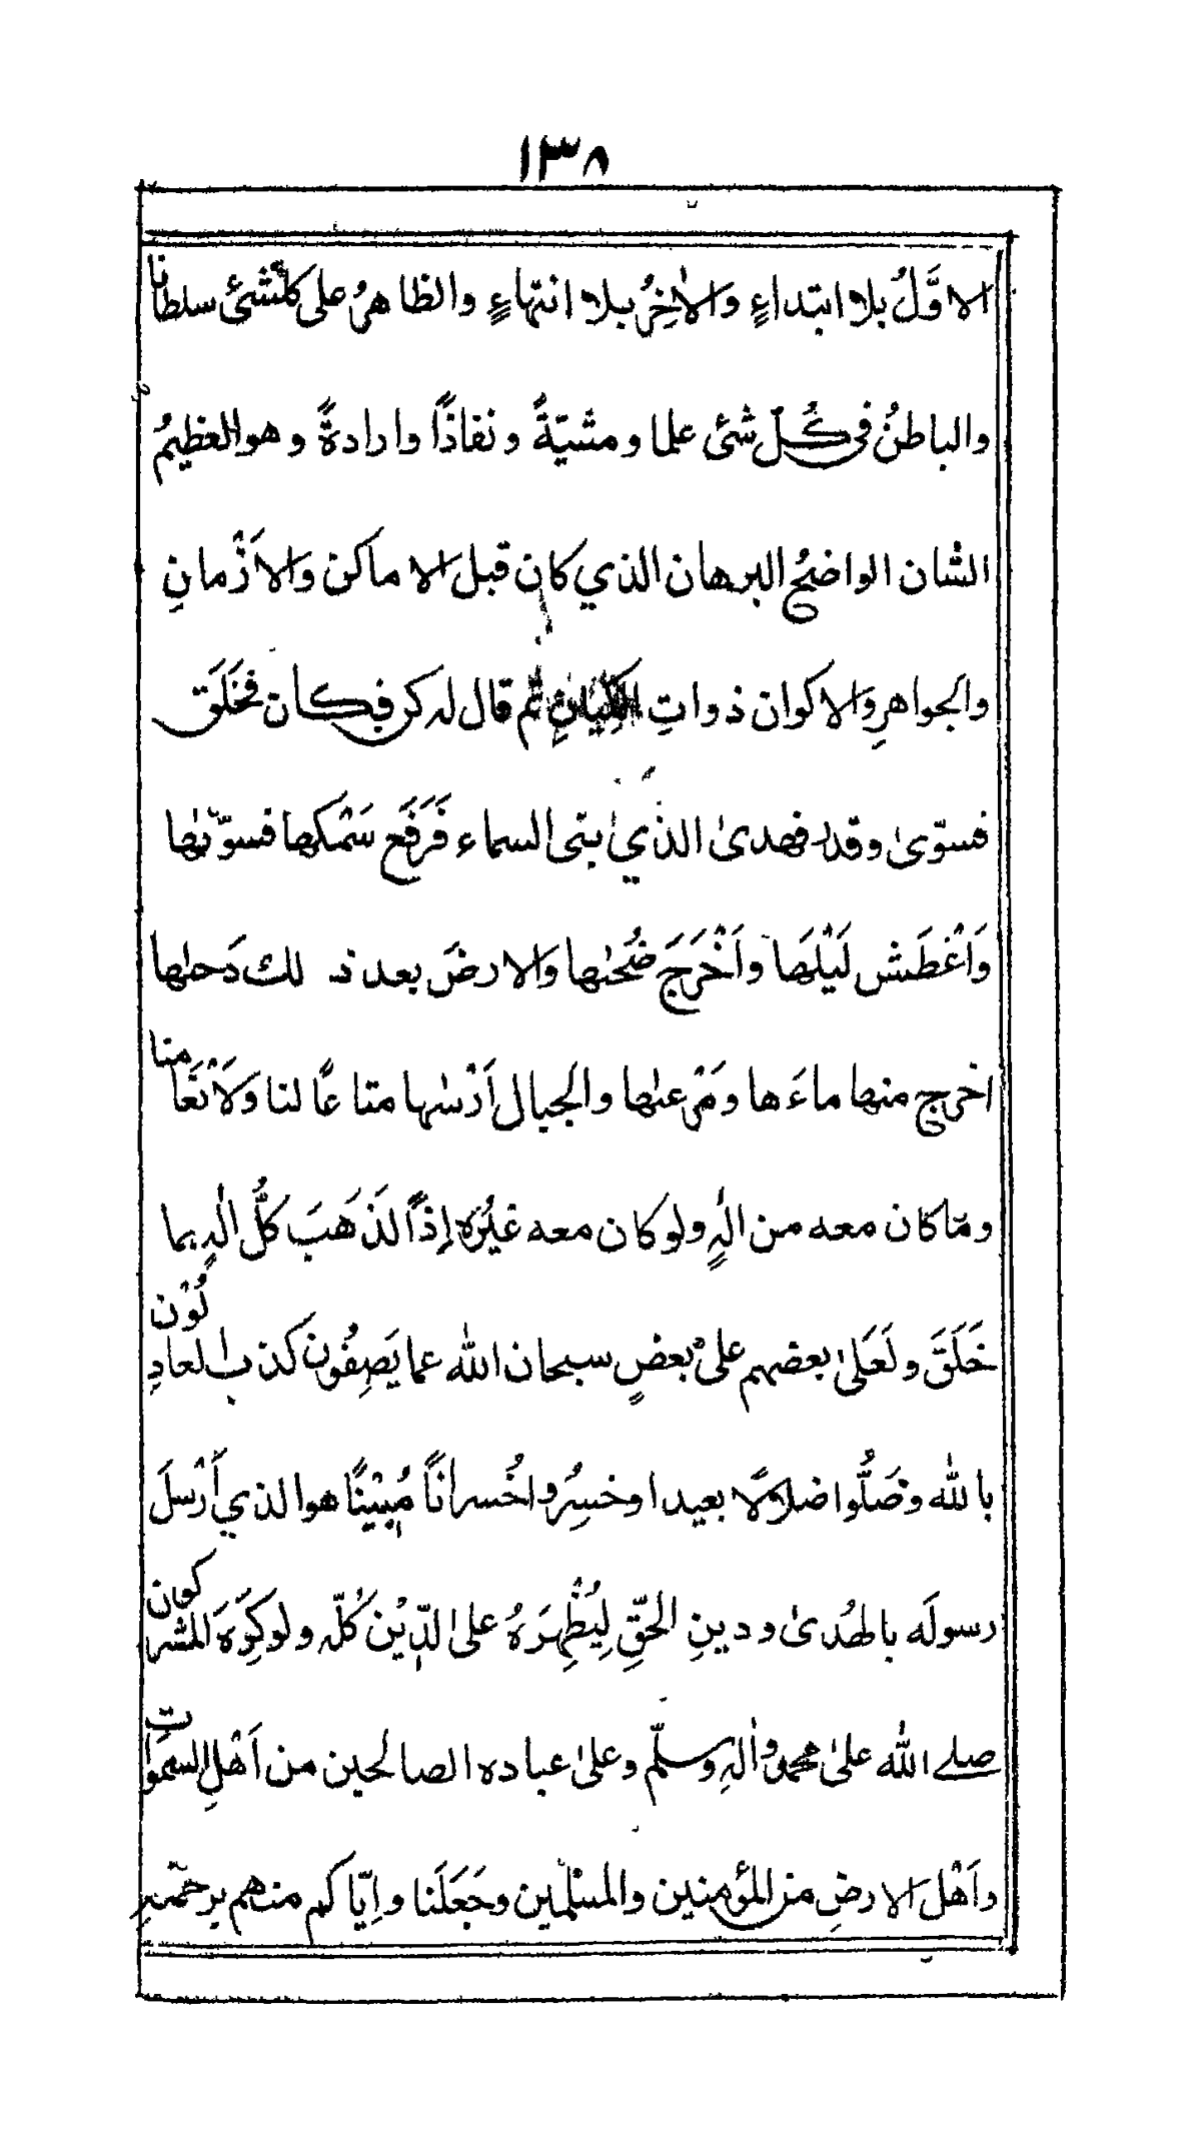 ١٣٨
الاوَّلُ بلا ابتداءٍ والاٰخِرُ بلا انتهاءٍ والظاهرُ على كلّشئ سلطانا
والباطنُ في كُلّ شئ علما ومشيّةً ونفاذًا وارادةً وهو العظيمُ
الشان الواضحُ البرهان الذي كان قبل الاماكن والاَزْمانِ
والجواهرِ والاكوان ذواتِ الكِيَانِ ثم قال له كن فيكان فخَلَقَ
فسوّىٰ وقدر فهدىٰ الذيْ بنى السماء فَرَفَعَ سَمْكها فسوّٰىها
وَاَغْطَش لَيْلَهَا واَخْرَجَ ضُحٰىها والارضَ بعد ذلك دَحٰىها
اخرج منها ماءَها ومَرْعٰىها والجبال اَرْسٰىها متاعًا لنا وَلاَنْعَامنا
ومّا كان معه من الٰہٍ ولو كان معه غَيْرُہ اِذًا لَذَهَبَ كلُّ الٰہٍ بما
خَلَقَ ولَعَلىٰ بعضهم علىٰ بعضٍ سبحان اللّٰه عما يَصِفُون كذب العادِلُوْن
باللّٰه وضَلُّوا ضلالًا بعيدا وخسِرُوا خُسرانًا مُبِيْنًا هو الذي اَرْسلَ
رسولَه بالهُدىٰ ودينِ الحقّ لِيُظْهِرَهُ على الدِّيْن كُلّہ ولو كَرِہَ المشركون
صلے اللّٰه علىٰ محمد واٰلہِ وسلّم وعلىٰ عباده الصالحين من اَهْلِ السمٰواتِ
واَهْل الارضِ من المؤمنين والمسْلمين وجَعَلَنا واِيّاكم منهم برحمتہِ